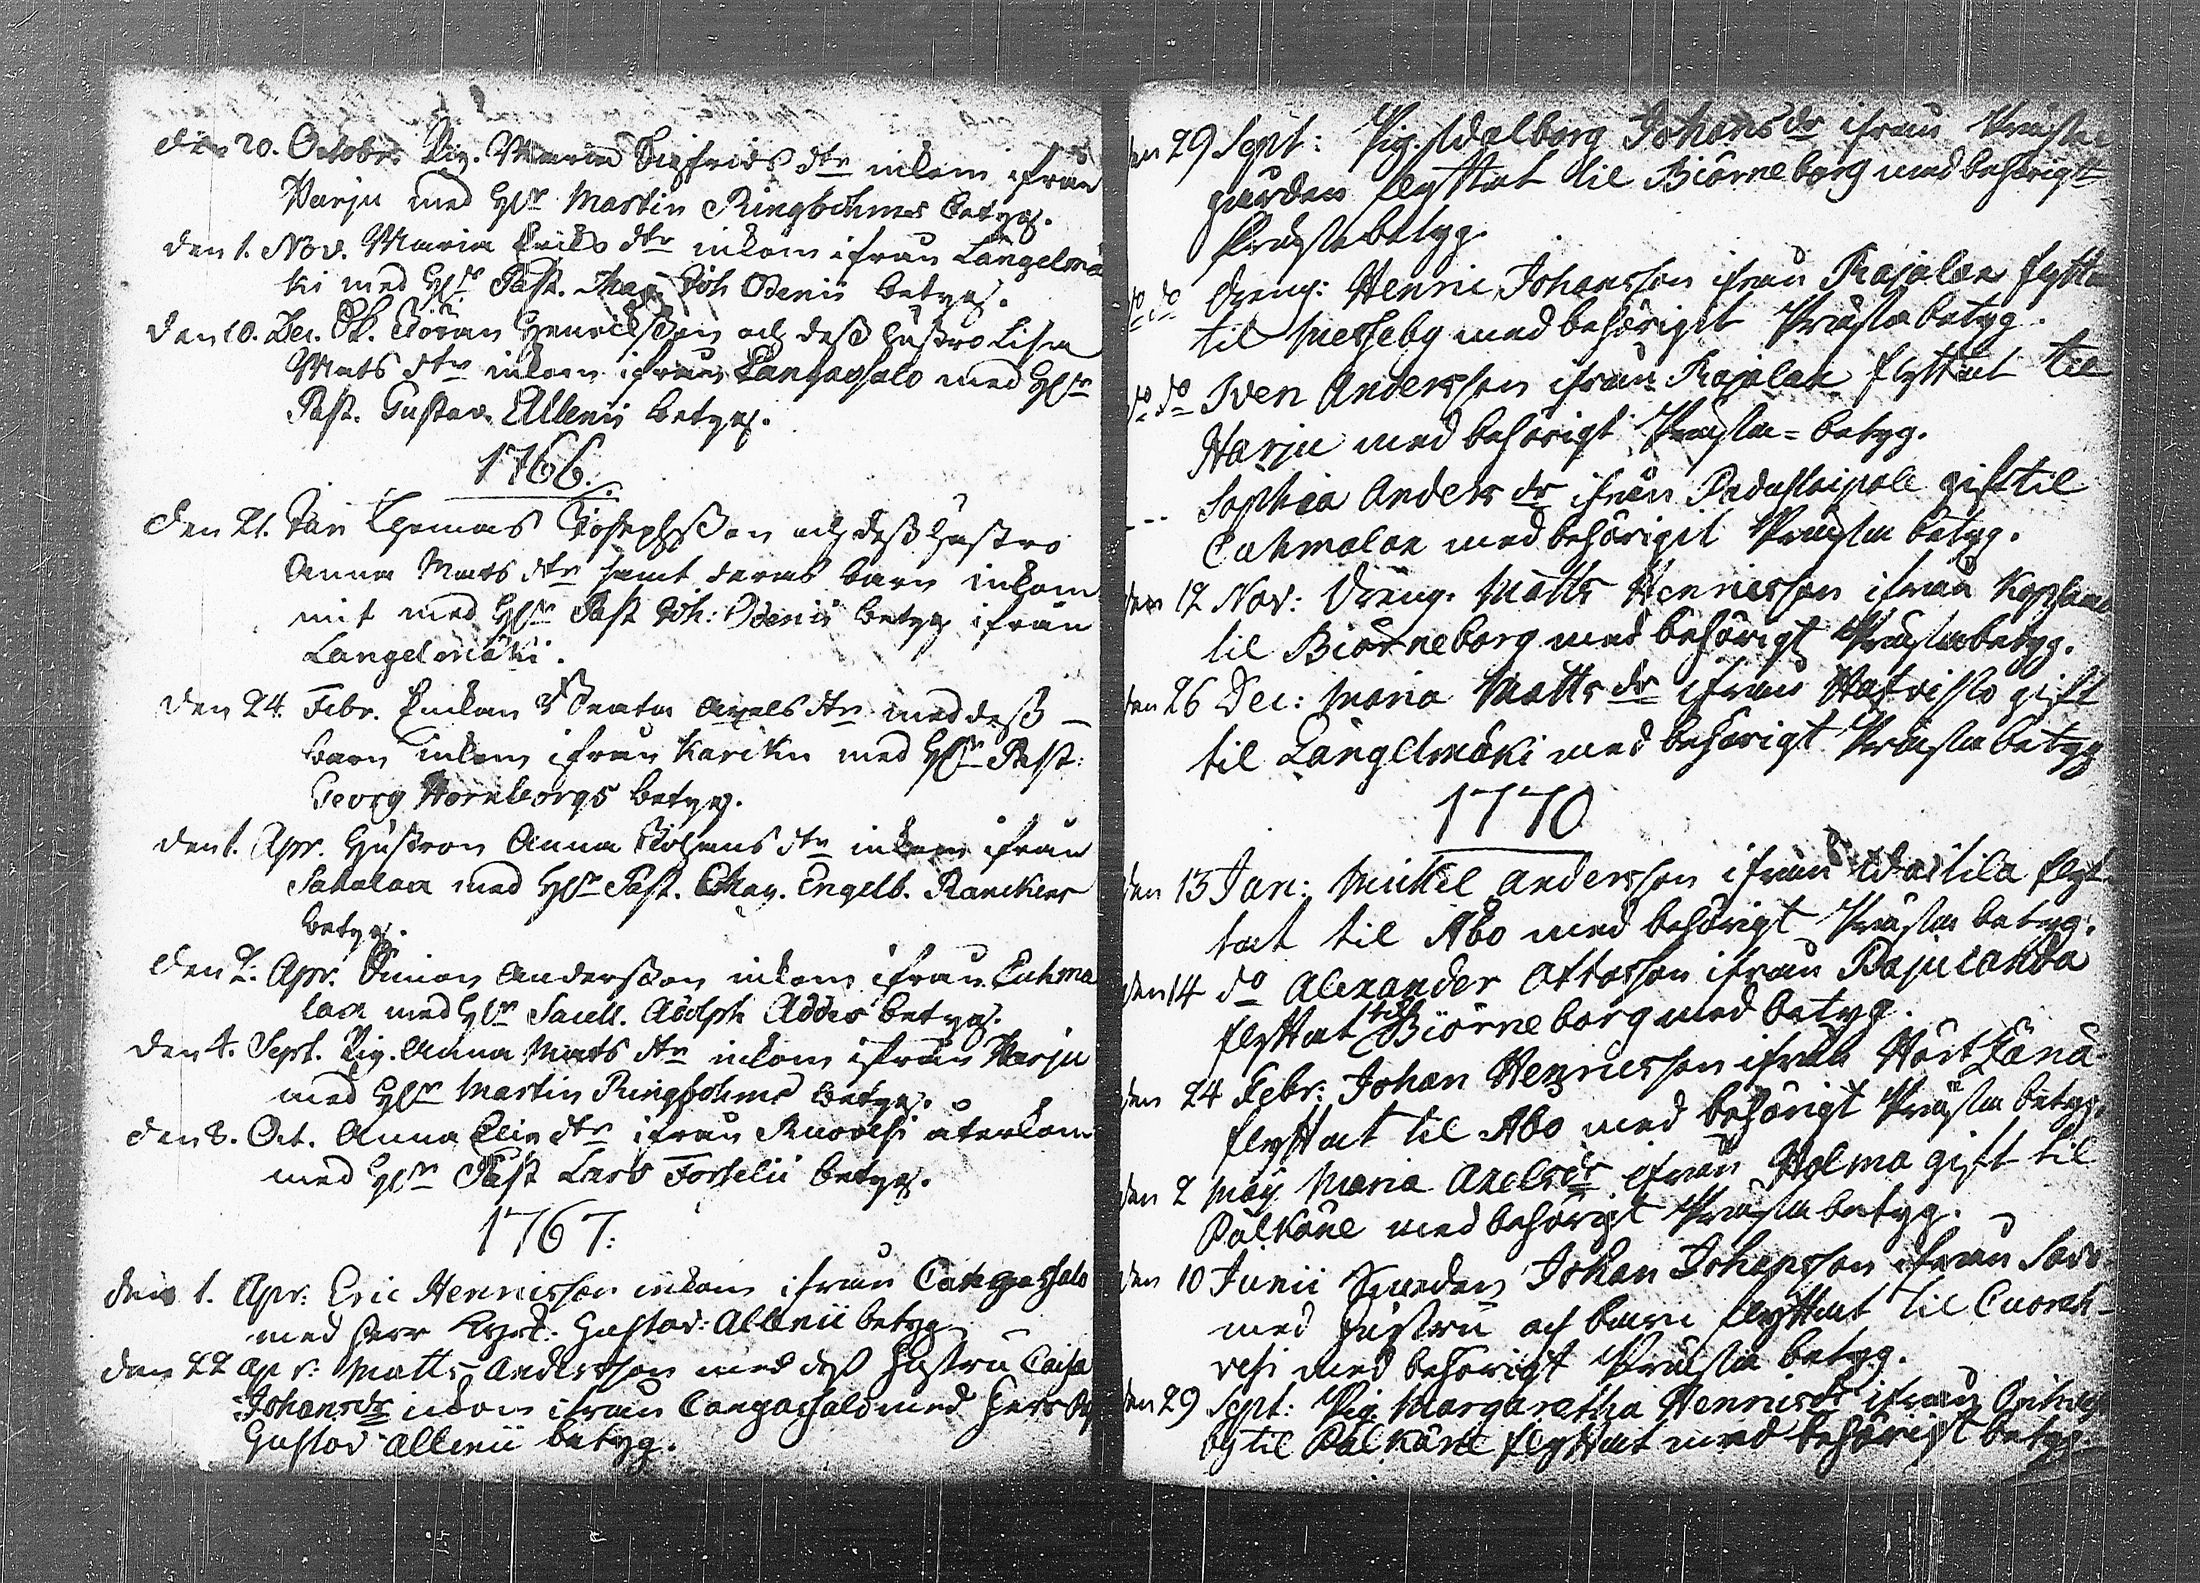 den 20. Octobr. Pig. Maria Sigfrids dtr inkom ifrån
Harju med H:r Martin Ringbohms betyg.
den 1. Nov. Maria Eriks dtr inkom ifrån Längelmä
ki med H:r Past. Mag. Joh Odenii betyg.
den 10. Dec. Sk. Jöran Henrichsson och dess hustro Lisa
Mats dtr inkom ifrån Kangasalo med H:r
Past. Gustav. Allenii betyg.
1766.
den 21. Jan Thomas Josephsson och dess Hustro
Anna Mats dtr samt deras barn inkom
mit med H:r Past Joh: Odenii betyg ifrån
Längelmäki.
den 24. Febr. Enkan Beata Axels dtr med dess
barn inkom ifrån Karcku med H:r Past:
Georg Hornborgs betyg.
den 1. Apr. Hustron Anna Johans dtr inkom ifrån
Sahalax med H:r Past. Mag. Engelb. Ranckens
betyg.
den 2. Apr. Simon Andersson inkom ifrån Cuhma
lax med H:r Sacell. Adolph betyg.
den 4. Sept. Pig. Anna Mats dtr inkom ifrån Harju
med H:r Martin Ringbohms betyg.
den 8. Oct. Anna Elis dtr ifrån Ruovesi återkom
med H:r Past Lars Forselii betyg.
1767.
den 1. Apr: Eric Henricsson inkom ifrån Cangasalo
med herr Kyrk: Gustav: Allenii betyg
den 22 Apr: Matts Andersson med dess hustru Caisa
Johansdr inkom ifrån Cangasalo med herr
Gustav Allenii betyg.
den 29 Sept: Pig. Adalborg Johans dr ifrån Prästa
gården flyttat til Biörneborg med behörigt
Prästabetyg.
do do Dreng: Henric Johansson ifrån Rajalax flytta
til Messeby med behörigit Prästabetyg.
do do Sven Andersson ifrån Rajalax flyttat til
Harju med behörigt Prästa-betyg.
--- Sophia Anders dr ifrån gift til
Cuhmalax med behörigit Prästa betyg.
den 12 Nov: Dreng. Matts Henricsson ifrån
til Biörneborg med behörigt Prästabetyg.
den 26 Dec: Maria Matts dr ifrån Hatvisto gift
til Längelmäki med behörigt Prästabetyg
1770
den 13 Jan: Mickel Andersson ifrån flyt
tat til Åbo med behörigt Prästa betyg.
den 14 do Alexander Ottosson ifrån Pajulanda
flyttat till Biörneborg med betyg.
den 24 Febr: Johan Henricsson ifrån
flyttat til Åbo med behörigt Prästa betyg.
den 2 Maij Maria Axelsdr ifrån Holma gift til
Pälkäne med behörigt Prästabetyg.
den 10 Junii Smeden Johan Johansson ifrån
med hustru och barn flyttat til Cuoreh-
vesi med behörigt Prästa betyg.
den 29 Sept: Pig. Margaretha Henricsdr ifrån
by til Pälkäne flyttat med behörigt betyg.